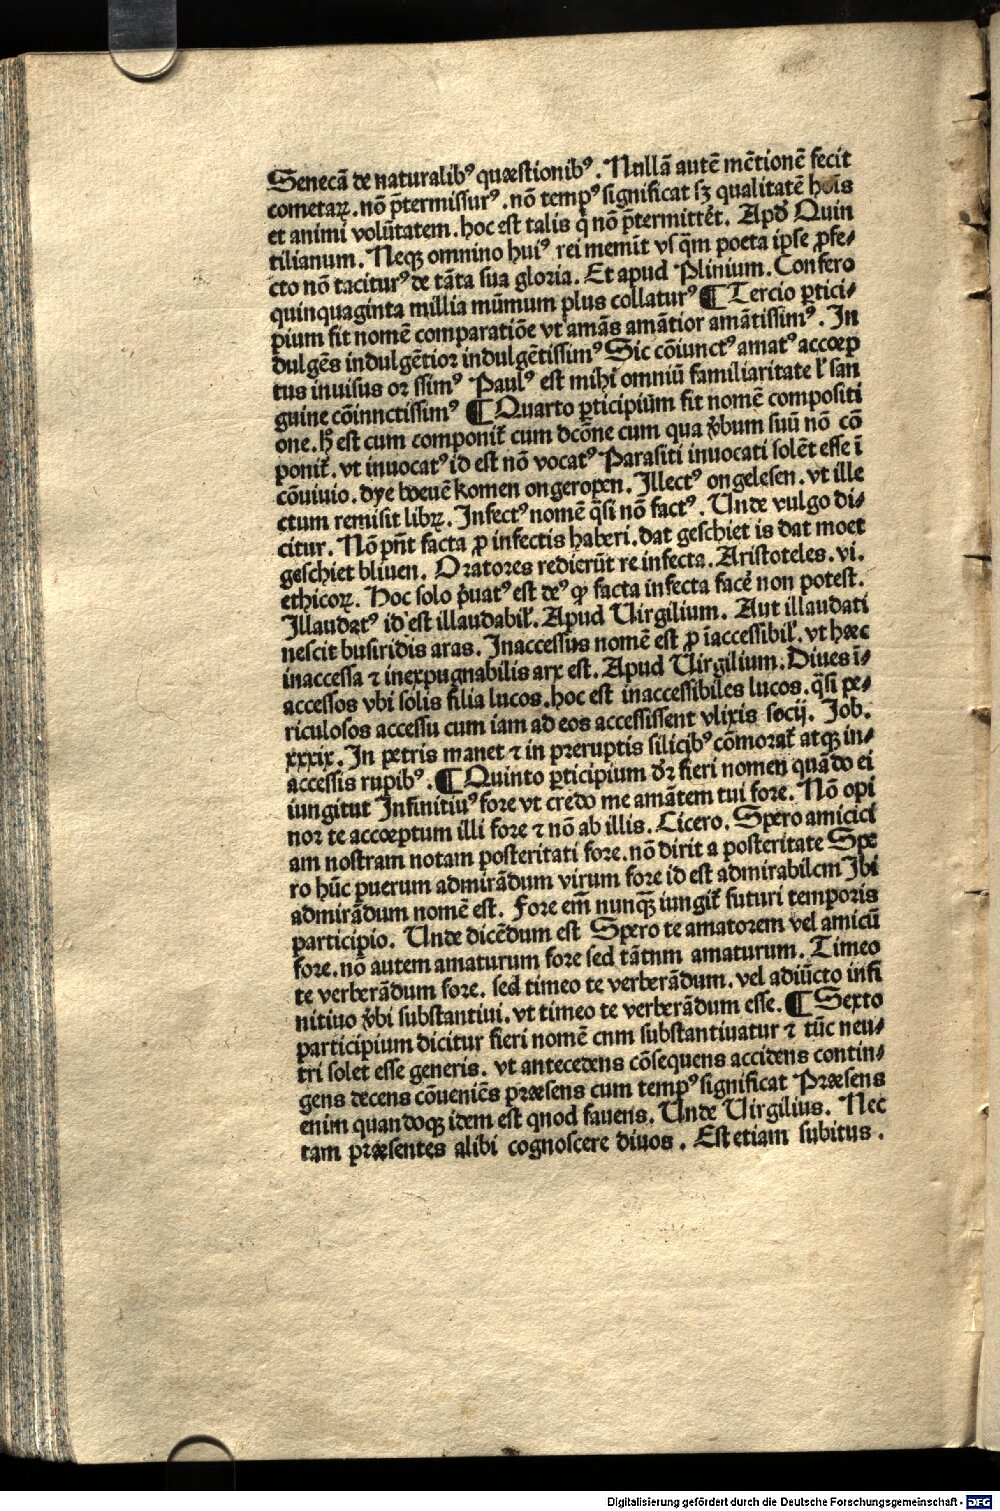 Senecã de naturalibꝰ quæstionibꝰ. Nullã autē mētionē fecit
cometaꝝ. nõ p̃termissurꝰ. nõ tempꝰ significat sꝫ qualitatē hoĩs
et animi volũtatem. hoc est talis q̃ nõ p̃termittēt. Apđ Quin
tilianum. Neqꝫ omnino huiꝰ rei meminit vsq̃m poeta ipse ꝓfe⸗
cto nõ taciturꝰ de tãta sua gloria. Et apud Plinium. Confero
quinquaginta millia nũmum plus collaturꝰ ¶ Tercio ꝑtici⸗
pium fit nomē comparatiõe vt amãs amãtior amãtissimꝰ. In
dulgēs indulgētior indulgētissimꝰ Sic cõiunctꝰ amatꝰ accœp
tus inuisus or ssimꝰ Paulꝰ est mihi omniũ familiaritate ł san
guine cõinnctissimꝰ ¶ Quarto ꝑticipiũm fit nomē compositi
one. h̃ est cum componit̃ cum dcõne cum qua v̓bum suũ nõ cõ
ponit̃. vt inuocatꝰ id est nõ vocatꝰ Parasiti inuocati solēt esse ĩ
cõuiuio. dye boeuē komen ongeropen. Illectꝰ ongelesen. vt ille
ctum remisit libꝝ. Infectꝰ nomē q̃si nõ factꝰ. Unde vulgo di⸗
citur. Nõ pñt facta ꝓ infectis haberi. dat geschiet is dat moet
geschiet bliuen. Oratores redierũt re infecta. Aristoteles. vi.
ethicoꝝ. Hoc solo p̃uatꝰ est deꝰ ꝙ facta infecta facē non potest.
Illaudatꝰ id est illaudabił. Apud Uirgilium. Aut illaudati
nescit busiridis aras. Inaccessus nomē est ꝓ ĩaccessibił. vt hæc
inaccessa ⁊ inexpugnabilis arx est. Apud Uirgilium. Diues ĩ⸗
accessos vbi solis filia lucos. hoc est inaccessibiles lucos. q̃si pe⸗
riculosos accessu cum iam ad eos accessissent vlixis socij. Job.
xxxix. In petris manet ⁊ in preruptis silicibꝰ cõmorat̃ atqꝫ in⸗
accessis rupibꝰ. ¶ Quinto ꝑticipium dr̃ fieri nomen quãdo ei
iungitut Infinitiuꝰ fore vt credo me amãtem tui fore. Nõ opi
nor te accœptum illi fore ⁊ nõ ab illis. Cicero. Spero amicici
am nostram notam posteritati fore. nõ dixit a posteritate Spe
ro hũc puerum admirãdum virum fore id est admirabilcm Ibi
admirãdum nomē est. Fore em̃ nunqꝫ iungit̃ futuri temporis
participio. Unde dicēdum est Spero te amatorem vel amicũ
fore. nõ autem amaturum fore sed tãtnm amaturum. Timeo
te verberãdum fore. sed timeo te verberãdum. vel adiũcto infi
nitiuo v̓bi substantiui. vt timeo te verberãdum esse. ¶ Sexto
participium dicitur fieri nomē cnm substantiuatur ⁊ tũc neu⸗
tri solet esse generis. vt antecedens cõsequens accidens contin⸗
gens decens cõueniēs præsens cum tempꝰ significat Præsens
enim quandoqꝫ idem est qnod fauens. Unde Uirgilius. Nec
tam præsentes alibi cognoscere diuos. Est etiam subitus.
Digitalisierung gefördert durch die Deutsche Forschungsgemeinschaft - DFG